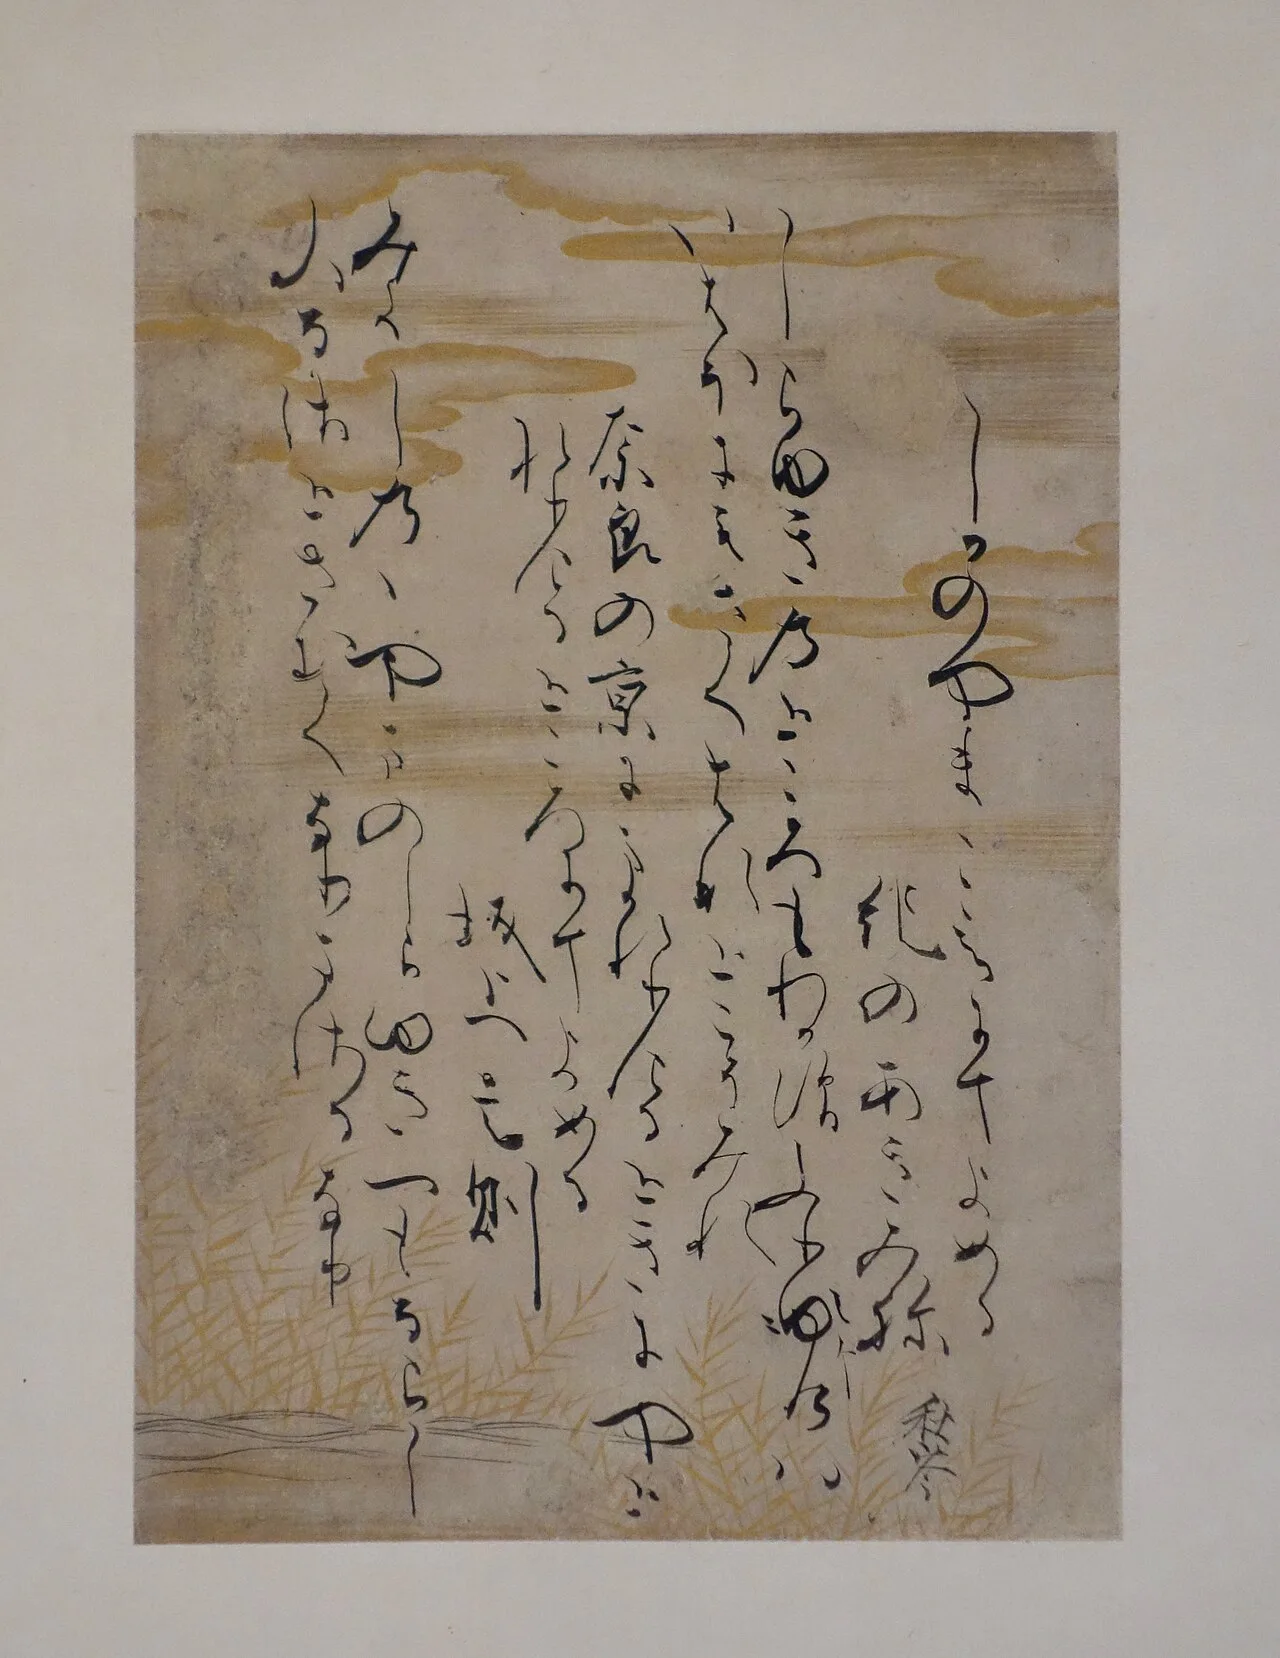 しかのやまこえにてよめる
紀のあきみね
秋岑
しらゆきのところもわかす
いはほにもさくはなとこそみれ
奈良の京にまかれりけるときにやと
れりけるところにてよめる
坂上是則
みよしのゝやまのしらゆきつもるらし
ふるさとさむくなりまさるなり